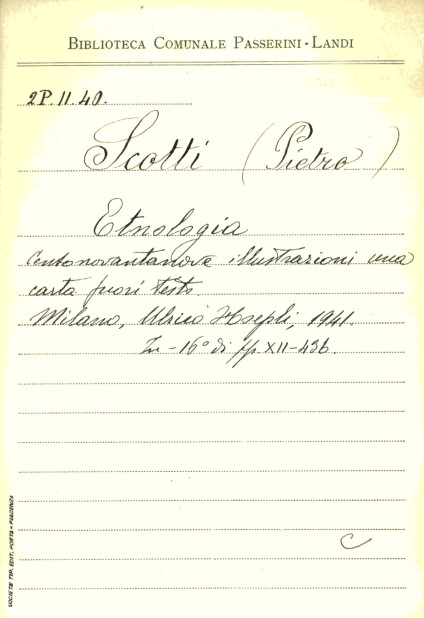 BIBLIOTECA COMUNALE PASSERINI-LANDI
2P.II.40.
Scotti (Pietro)
Etnologia
Centonovantanove illustrazioni una
carta fuori testo
Milano, Ulrico Hoepli, 1941.
In-16° di pp XII-436.
C
SOCIETÀ TIP. EDIT. PORTA - PIACENZA